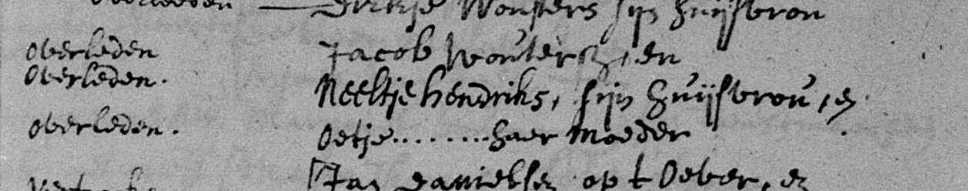 overleeden Dirkje Wouters sijn huijsvrou
overleden Jacob Wouters, en
overleden. Neeltje hendriks, sijn huijsvrou, en
overleden. Oetje........haer Moeder
Jan danielsen op t Oever, en